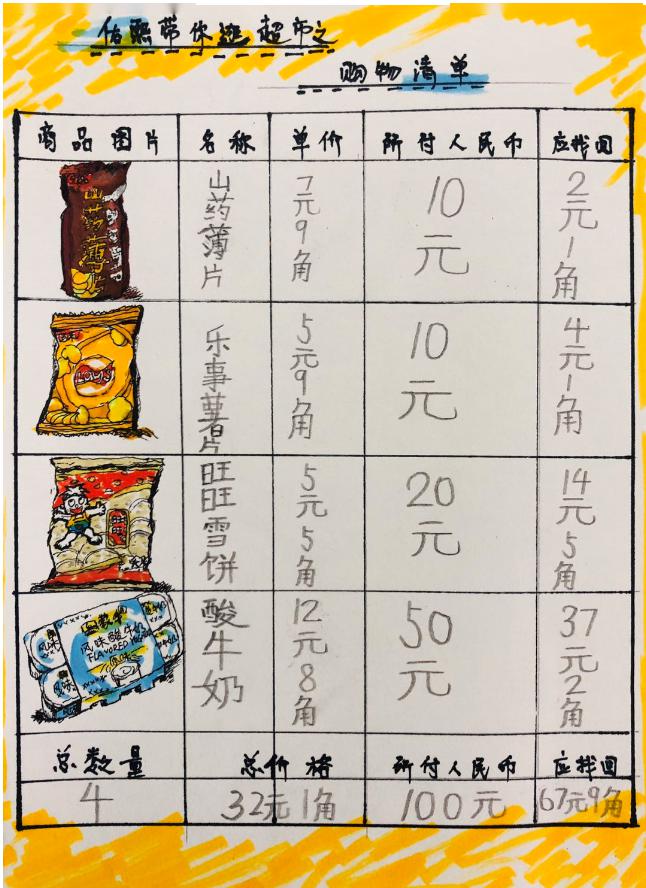 佑熙带你逛超市之
购物清单
商品图片 名称 单价 所付人民币 应找回
山药薄片 7元9角 10元 2元1角
乐事薯片 5元9角 10元 4元1角
旺旺雪饼 5元5角 20元 14元5角
酸牛奶 12元8角 50元 37元2角
山药薄片
Lay's
旺旺
风味酸牛奶
FLAVORED
风味
总数量 总价格 所付人民币 应找回
4 32元1角 100元 67元9角